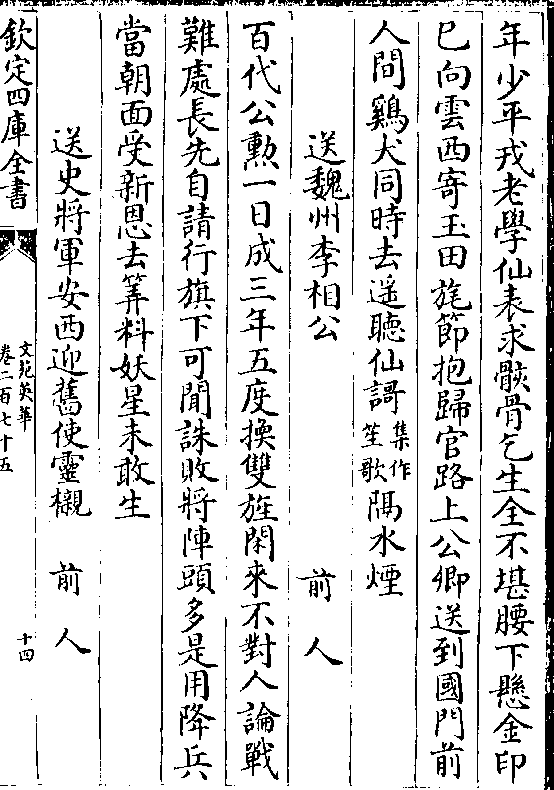 年少平戎老學仙表求骸骨乞生全不堪腰下懸金印
已向雲西寄玉田旄節抱歸官路上公卿送到國門前
人間鷄犬同時去遥聽仙謌集作笙歌隔水煙
送魏州李相公 前人
百代公勲一日成三年五度換雙旌閑來不對人論戰
難處長先自請行旗下可聞誅敗將陣頭多是用降兵
當朝面受新恩去筭料妖星未敢生
送史將軍安西迎舊使靈櫬 前人
欽定四庫全書
文苑英華
卷二百七十五
十四